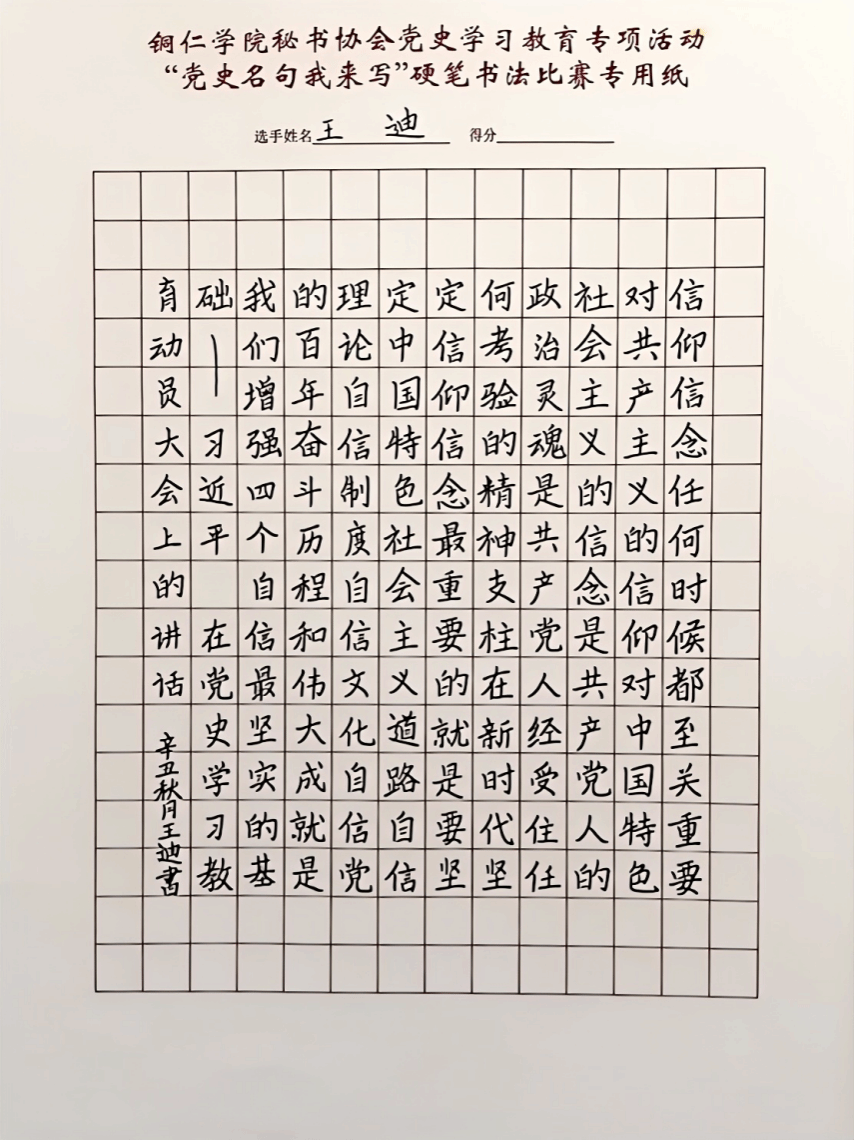 铜仁学院秘书协会党史学习教育专项活动
“党史名句我来写”硬笔书法比赛专用纸
选手姓名 王 迪 得分
信仰信念任何时候都至关重要
对共产主义的信仰对中国特色
社会主义的信念是共产党人的
政治灵魂是共产党人经受住任
何考验的精神支柱在新时代坚
定信仰信念最重要的就是要坚
定中国特色社会主义道路自信
理论自信制度自信文化自信党
的百年奋斗历程和伟大成就是
我们增强四个自信最坚实的基
础——习近平 在党史学习教
育动员大会上的讲话
辛丑秋月王迪書